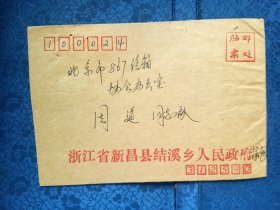 100024
贴邮票处
北京市867信箱
协会办公室
周蕴 同志收
浙江省新昌县结溪乡人民政府